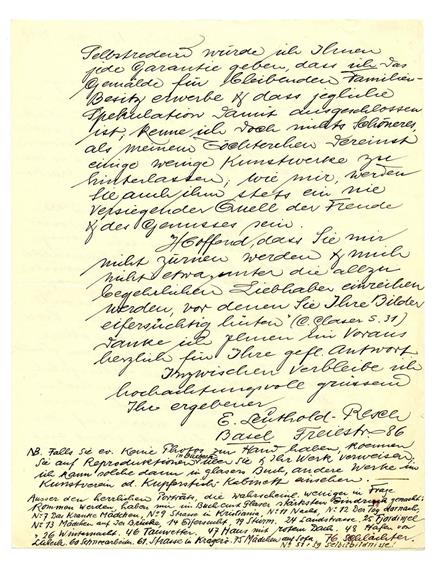 Selbstredend würde ich Ihnen
jede Garantie geben, dass ich das
Gemälde für bleibenden Familien-
Besitz erwerbe & dass jegliche
Spekulation damit ausgeschlossen
ist, kenne ich doch nichts Schöneres,
als meinem Töchterchen dereinst
einige wenige Kunstwerke zu
hinterlassen, wie mir, werden
Sie auch ihm stets ein nie
versiegender Quell der Freude
& des Genusses sein.
Hoffend, dass Sie mir
nicht zürnen werden & mich
nicht etwa "unter die allzu
begehrlichen Liebhaber einreihen
werden, vor denen Sie Ihre Bilder
eifersüchtig hüten" (C. Glaser S. 31)
danke ich Ihnen im Voraus
herzlich für Ihre gefl. Antwort
Inzwischen verbleibe ich
hochachtungsvoll grüssend
Ihr ergebener
E. Leuthold-
Basel 86
NB. Falls Sie ev. keine Photos zur Hand haben koennen
Sie auf Reproduktionen Ihr Werk verweisen,
ich kann solche dann in Glasers Buch, andere Werke im
Kunstverein od. Kupferstich Kabinett ansehen.
Ausser den herrlichen Porträts, die wahrscheinl. weniger in Frage
kommen werden, haben mir im Buch von Glaser stärksten Eindruck gemacht:
No 7 Das Kranke Mädchen, No 9 Strasse in Kristiania, No 11 Nacht, No 12 Der Tag darnach,
No 13 Mädchen auf der Brücke, 14 Eifersucht, 19 Sturm, 24 Sandstrasse, 25 Fjord
26 Winternacht, 46 Tauwetter, 47 Haus mit rotem Dach, 48 Hafen von
Lübeck, 61 Strasse in Kragerö, 75 Mädchen auf Sofa, 76 Schlächter,
No 51 Selbstbildnise!